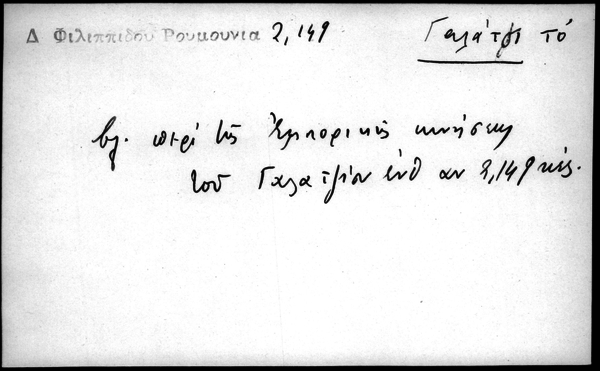 Δ Φιλιππιδου Ρουμουνια 2,149 Γαλάτζι τό
βλ. περί τῆς Ἐμπορικῆς κινήσεως
τοῦ Γαλατζίου ἐνθ αν 2,149 κἑξ.